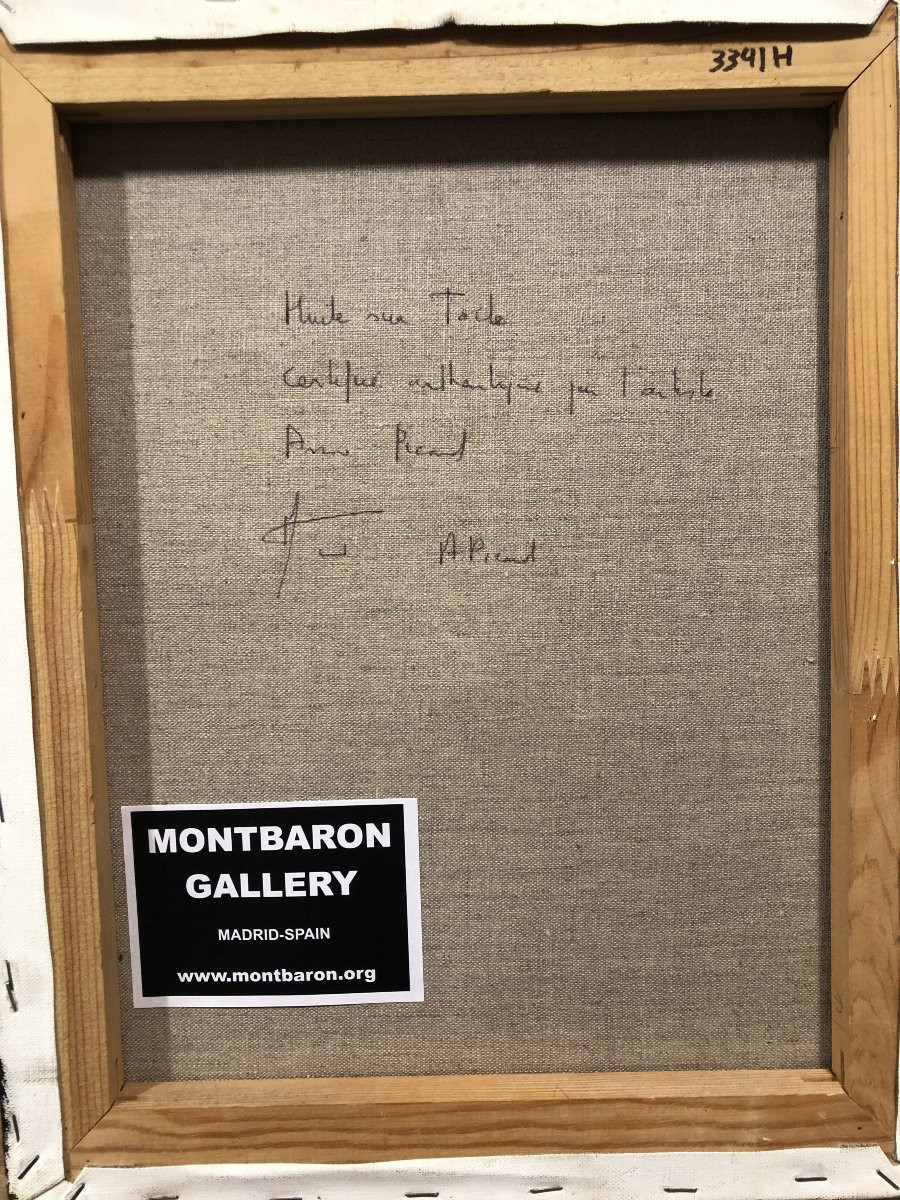 3391H
Huile sur Toile
Certifié authentique par l'artiste
Picard
A. Picard
MONTBARON
GALLERY
MADRID-SPAIN
www.montbaron.org